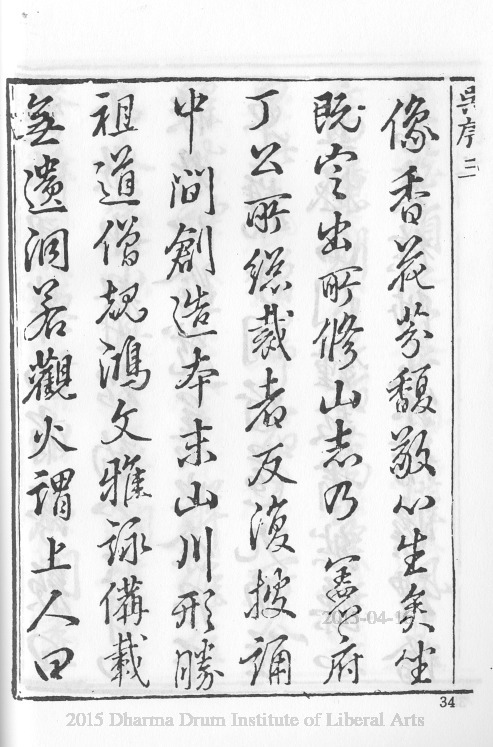 吳序 三
像香花芬馥敬心生矣坐
既定出所修山志乃 憲府
丁公所總裁者反復披誦
中間創造本末山川形勝
祖道僧規鴻文雅詠備載
無遺洞若觀火謂上人曰
34
2015 Dharma Drum Institute of Liberal Arts